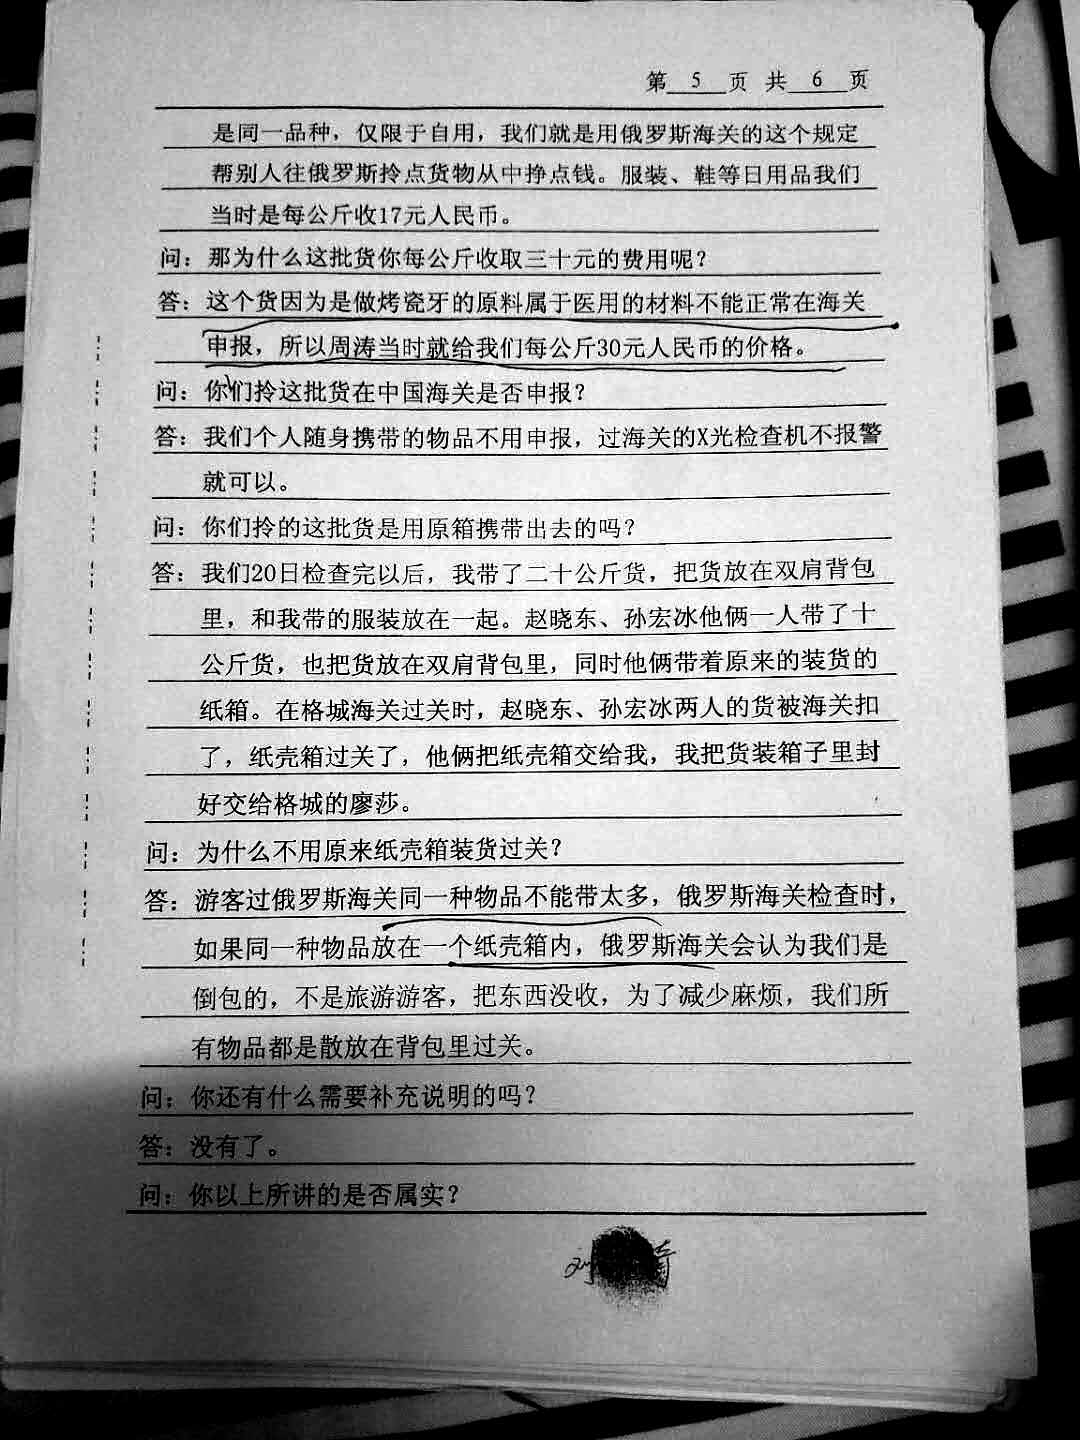 第 5 页 共 6 页
是同一品种，仅限于自用，我们就是用俄罗斯海关的这个规定
帮别人往俄罗斯拎点货物从中挣点钱。服装、鞋等日用品我们
当时是每公斤收17元人民币。
问：那为什么这批货你每公斤收取三十元的费用呢？
答：这个货因为是做烤瓷牙的原料属于医用的材料不能正常在海关
申报，所以周涛当时就给我们每公斤30元人民币的价格。
问：你们拎这批货在中国海关是否申报？
答：我们个人随身携带的物品不用申报，过海关的X光检查机不报警
就可以。
问：你们拎的这批货是用原箱携带出去的吗？
答：我们20日检查完以后，我带了二十公斤货，把货放在双肩背包
里，和我带的服装放在一起。赵晓东、孙宏冰他俩一人带了十
公斤货，也把货放在双肩背包里，同时他俩带着原来的装货的
纸箱。在格城海关过关时，赵晓东、孙宏冰两人的货被海关扣
了，纸壳箱过关了，他俩把纸壳箱交给我，我把货装箱子里封
好交给格城的廖莎。
问：为什么不用原来纸壳箱装货过关？
答：游客过俄罗斯海关同一种物品不能带太多，俄罗斯海关检查时，
如果同一种物品放在一个纸壳箱内，俄罗斯海关会认为我们是
倒包的，不是旅游游客，把东西没收，为了减少麻烦，我们所
有物品都是散放在背包里过关。
问：你还有什么需要补充说明的吗？
答：没有了。
问：你以上所讲的是否属实？